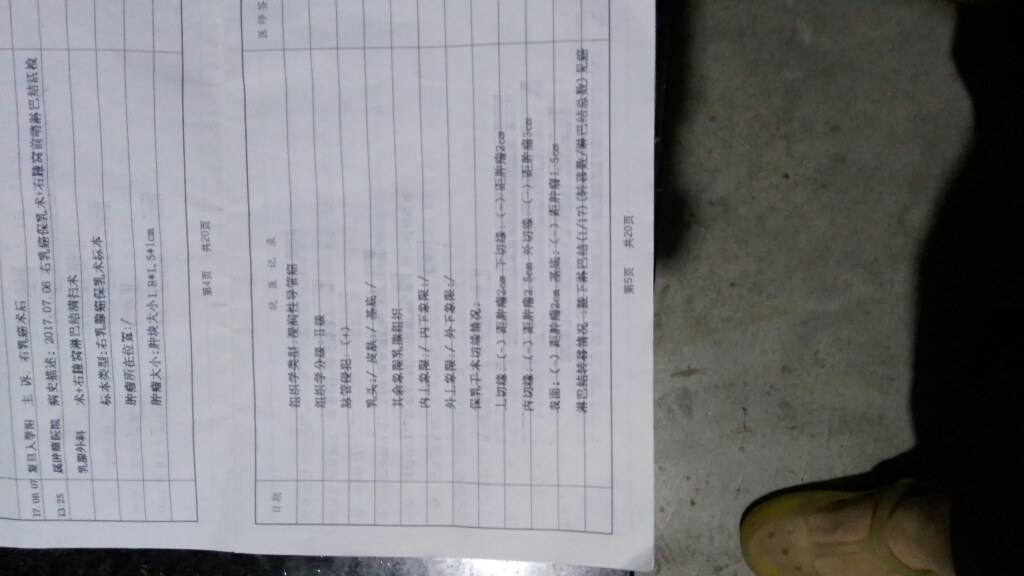 17.08.07 复旦大学附 主 诉: 右乳癌术后
13:25 属肿瘤医院 病史描述: 2017.07.06 右乳癌保乳术+右腋窝前哨淋巴结活检
乳腺外科 术+右腋窝淋巴结清扫术
标本类型:右乳腺癌保乳术标本
肿瘤所在位置:/
肿瘤大小:肿块大小1.8*1.5*1cm
第4页 共20页
医师签
日期 就 医 记 录
组织学类型 浸润性导管癌
组织学分级 II级
脉管侵犯: (+)
乳头:/ 皮肤:/ 基底:/
其余象限乳腺组织
内上象限:/ 内下象限:/
外上象限:/ 外下象限:/
保乳手术切缘情况:
上切缘: (-) 距肿瘤2cm 下切缘 (-) 距肿瘤2cm
内切缘: (-) 距肿瘤2.5cm 外切缘 (-) 距肿瘤3cm
表面: (-) 距肿瘤2cm 基底: (-) 距肿瘤1.5cm
淋巴结转移情况 腋下淋巴结(1/17)(转移数/淋巴结总数)见癌
第5页 共20页